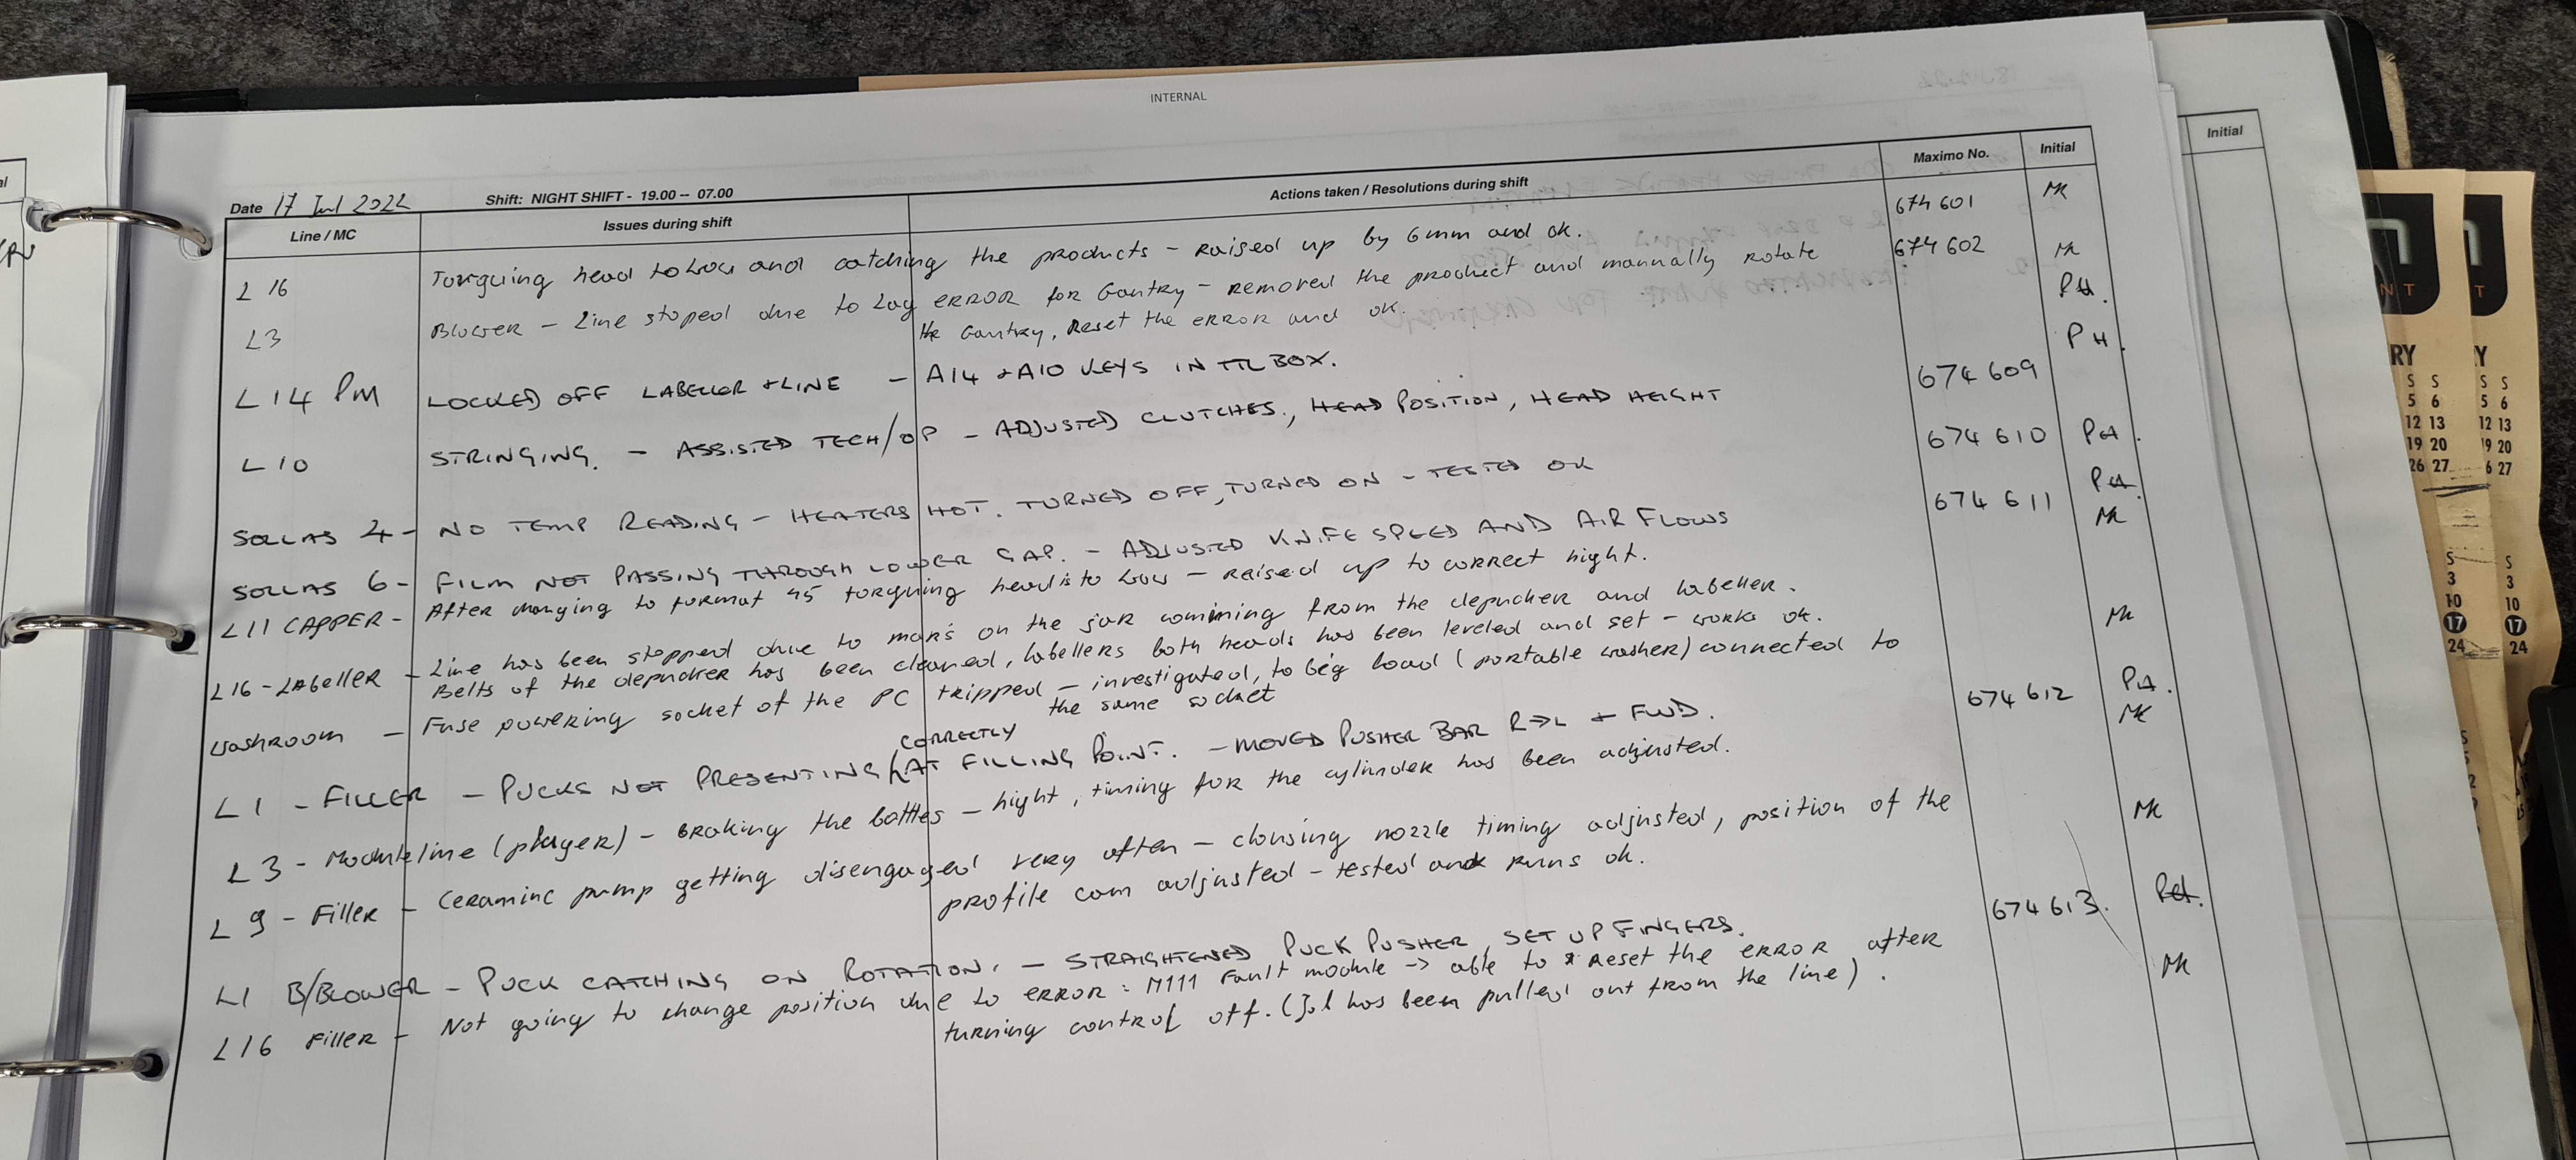 INTERNAL
Date 17 Jul 2022 Shift: NIGHT SHIFT - 19.00 -- 07.00
Line / MC Issues during shift Actions taken / Resolutions during shift Maximo No. Initial
L 16 Torquing head to low and catching the products - raised up by 6mm and ok. 674 601 MK
L3 Blower - Line stoped due to Lag ERROR for Gantry - Removed the product and manually rotate 674 602 MK
the Gantry, Reset the ERROR and ok.
L14 PM LOCKED OFF LABELLER + LINE - A14 + A10 KEYS IN TTL BOX. PH.
L10 STRINGING. - ASSISTED TECH/OP - ADJUSTED CLUTCHES, HEAD POSITION, HEAD HEIGHT 674 609 PH.
SOLLAS 4 - NO TEMP READING - HEATERS HOT. TURNED OFF, TURNED ON - TESTED OK 674 610 PH.
SOLLAS 6 - FILM NOT PASSING THROUGH LOWER GAP. - ADJUSTED KNIFE SPEED AND AIR FLOWS 674 611 PH.
L11 CAPPER - After changing to format 45 torquing head is to low - raised up to correct hight. MK
L16 - LABELLER - Line has been stopped due to marks on the jar comming from the depucker and labeller.
Belts of the depucker has been cleaned, labellers both heads has been leveled and set - works ok. MK
Washroom - Fuse powering socket of the PC tripped - investigated, to big load (portable washer) connected to
the same socket
L1 - FILLER - PUCKS NOT PRESENTING CORRECTLY AT FILLING POINT. - MOVED PUSHER BAR R→L + FWD. 674 612 PH.
L3 - Moduleline (plager) - Braking the bottles - hight, timing for the cylinder has been adjusted. MK
L9 - Filler - Ceraminc pump getting disengaged very often - clousing nozzle timing adjusted, position of the
profile cam adjusted - tested and runs ok. MK
L1 B/BLOWER - PUCK CATCHING ON ROTATION. - STRAIGHTENED PUCK PUSHER, SET UP FINGERS. 674 613. PH.
L16 Filler - Not going to change position due to error: M111 Fault module -> able to Reset the ERROR after MK
turning control off. (Job has been pulled out from the line).
Initial